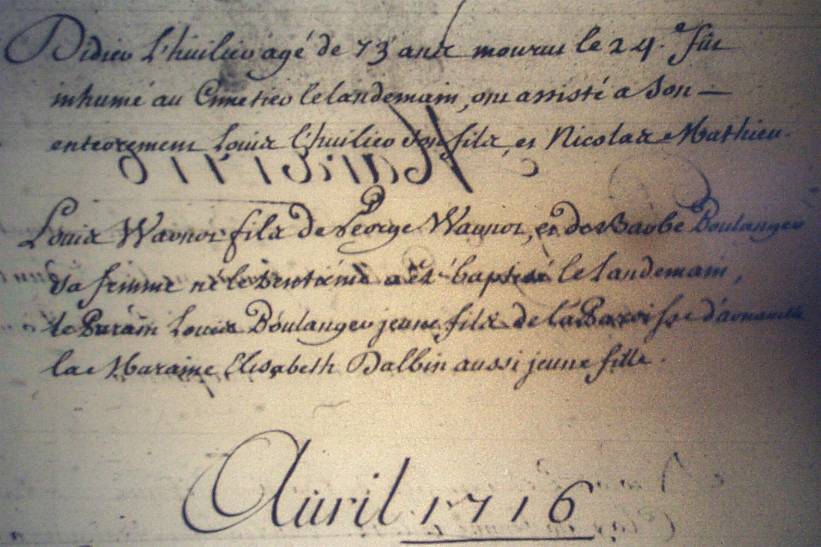 Didier L'huilier agé de 73 ans mourut le 24.e fut
inhumé au Cimetier le landemain, ont assisté a son —
enterrement Louis l'huilier son fils, et Nicolas Mathieu.
Louis Warnot fils de George Warnot, et de Barbe Boulanger
sa femme né le trentiéme a été baptisé le landemain,
le Parain Louis Boulanger jeune fils de la Paroisse
la Maraine Elisabeth Dalbin aussi jeune fille.
Auril 1716